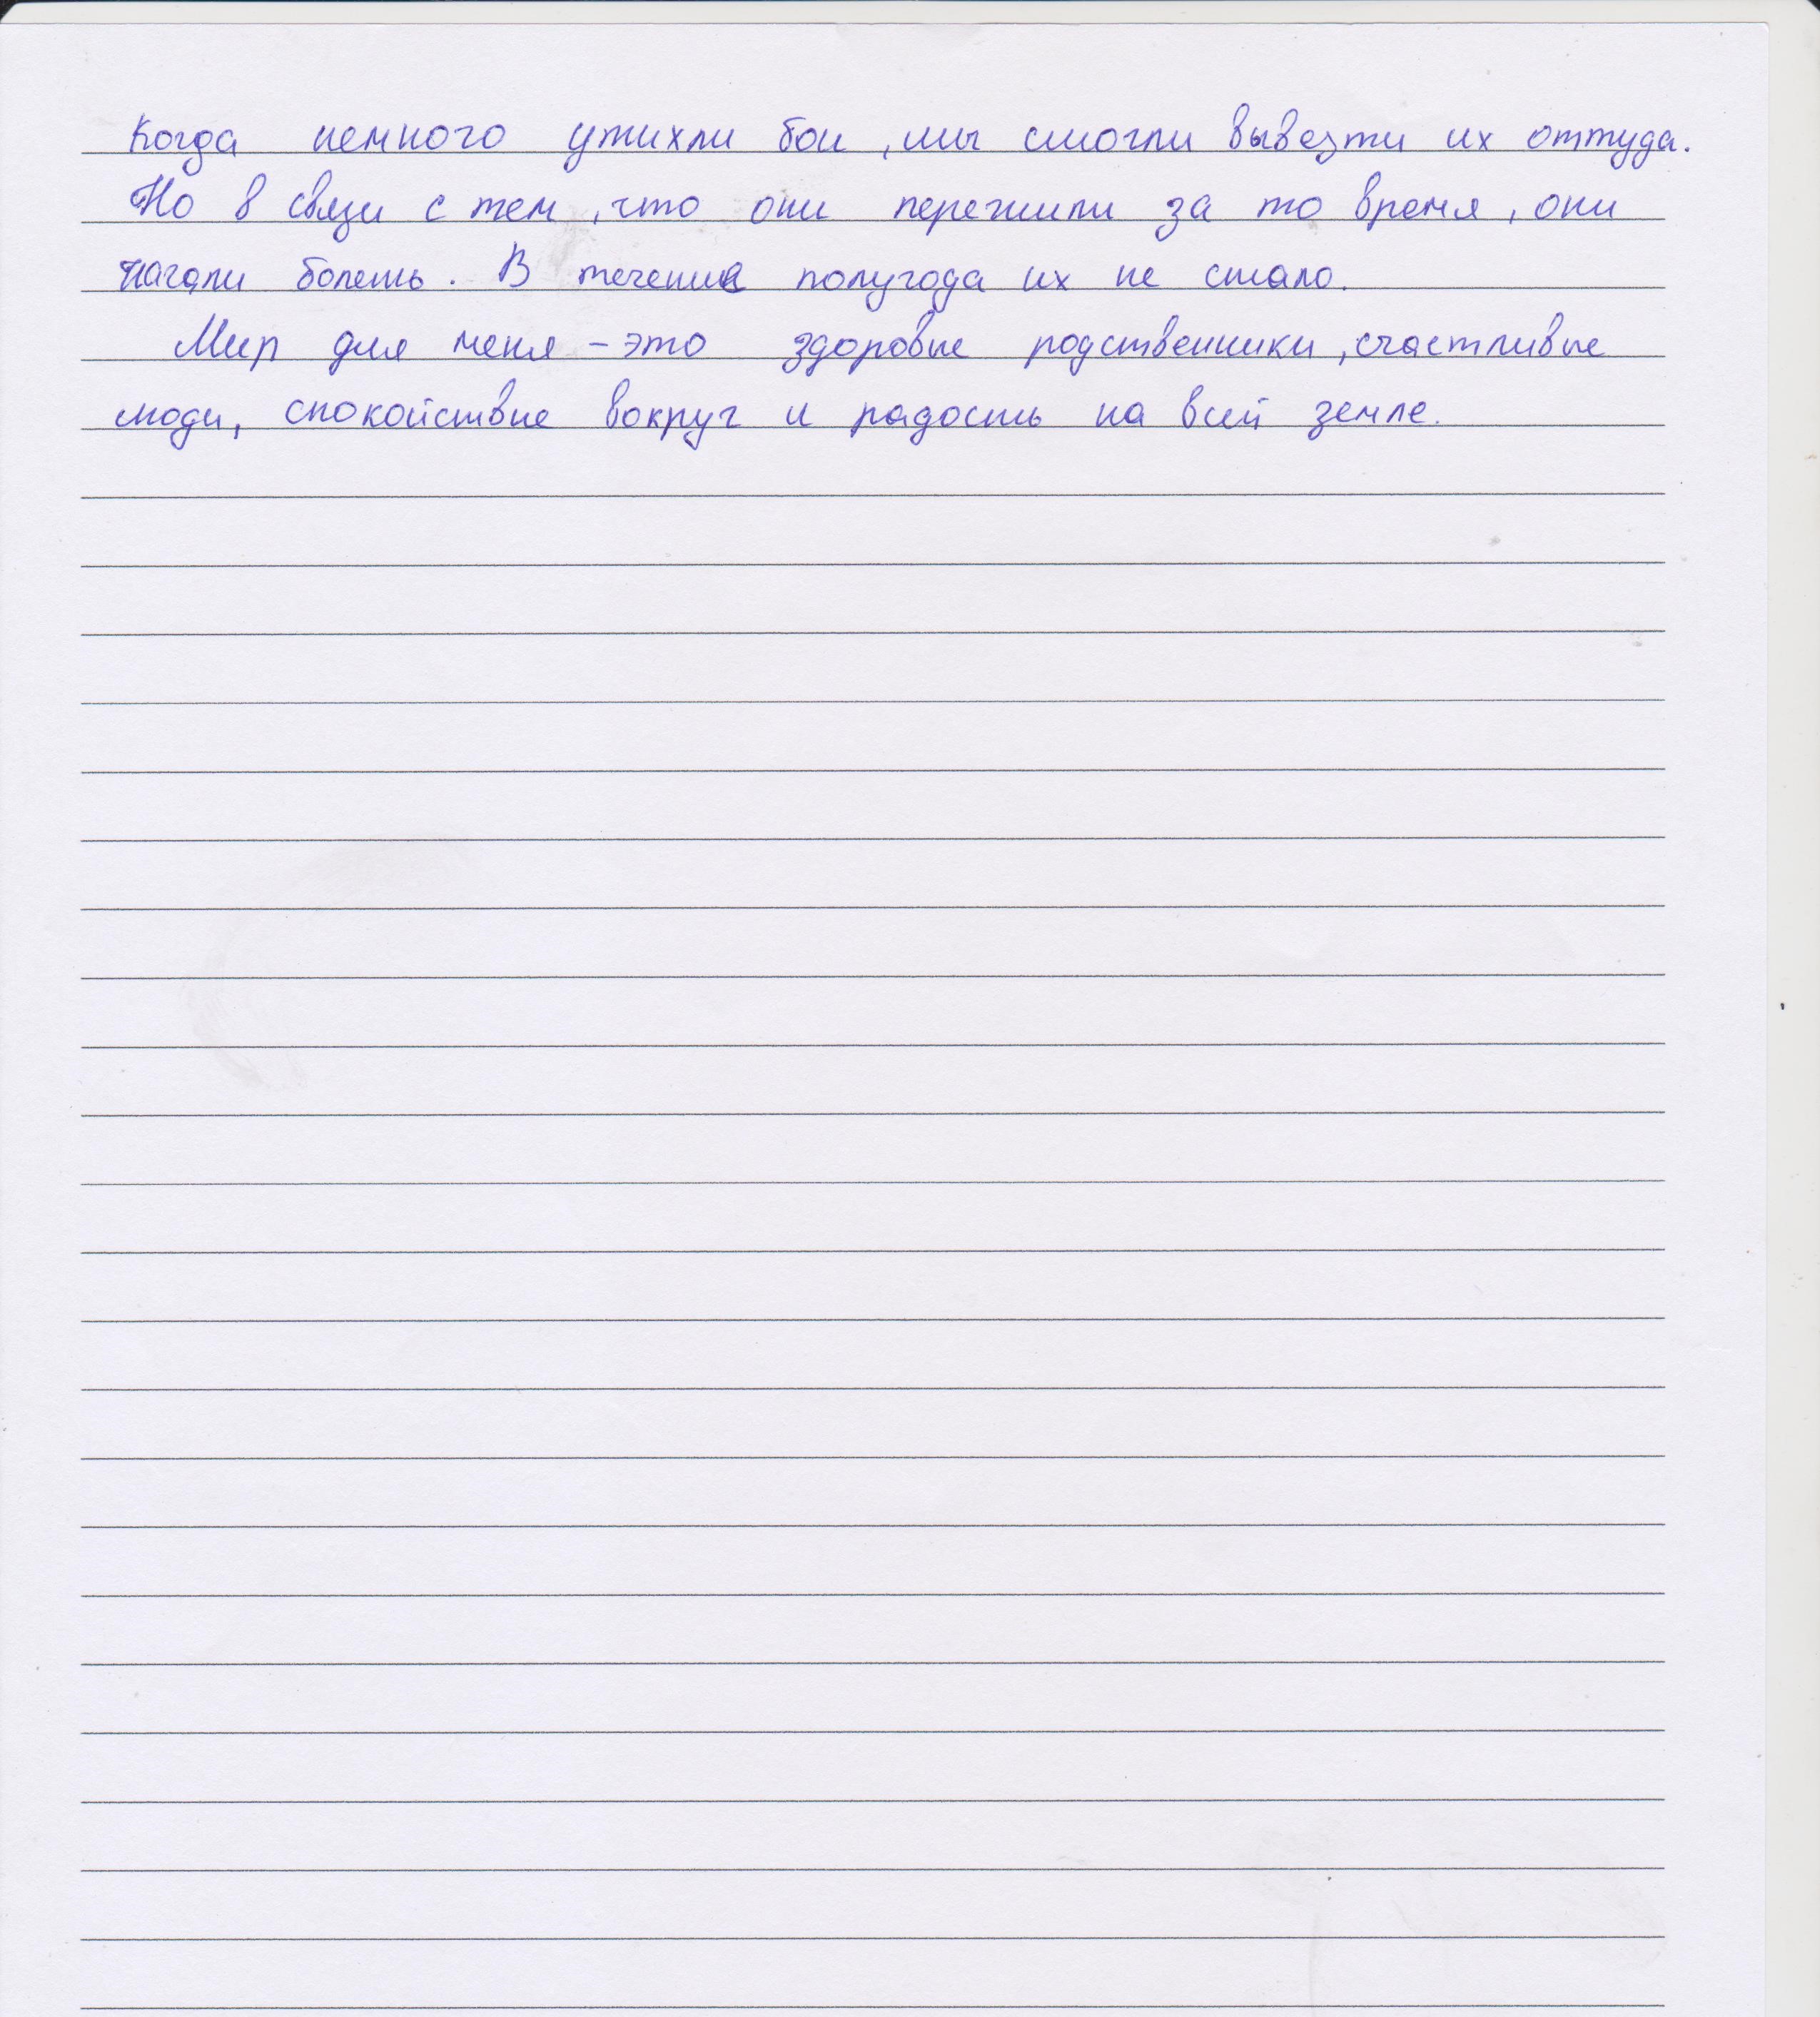 Когда немного утихли бои, мы смогли вывезти их оттуда.
Но в связи с тем, что они пережили за то время, они
начали болеть. В течение полугода их не стало.
Мир для меня – это здоровые родственники, счастливые
люди, спокойствие вокруг и радость на всей земле.